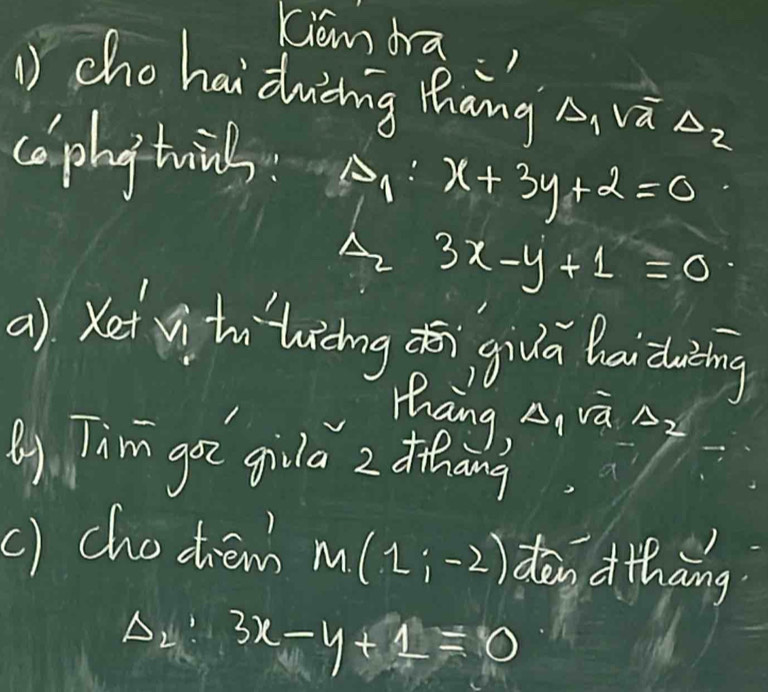 Kiểm tra
1) cho hai đường thẳng Δ₁ và Δ₂
có phg trình: Δ₁: x + 3y + 2 = 0
Δ₂ 3x - y + 1 = 0
a) Xét vị trí tương đối giữa hai đường
thẳng Δ₁ và Δ₂
b) Tìm góc giữa 2 đthẳng
c) cho điểm M(1; -2) đến đthẳng
Δ₂: 3x - y + 1 = 0